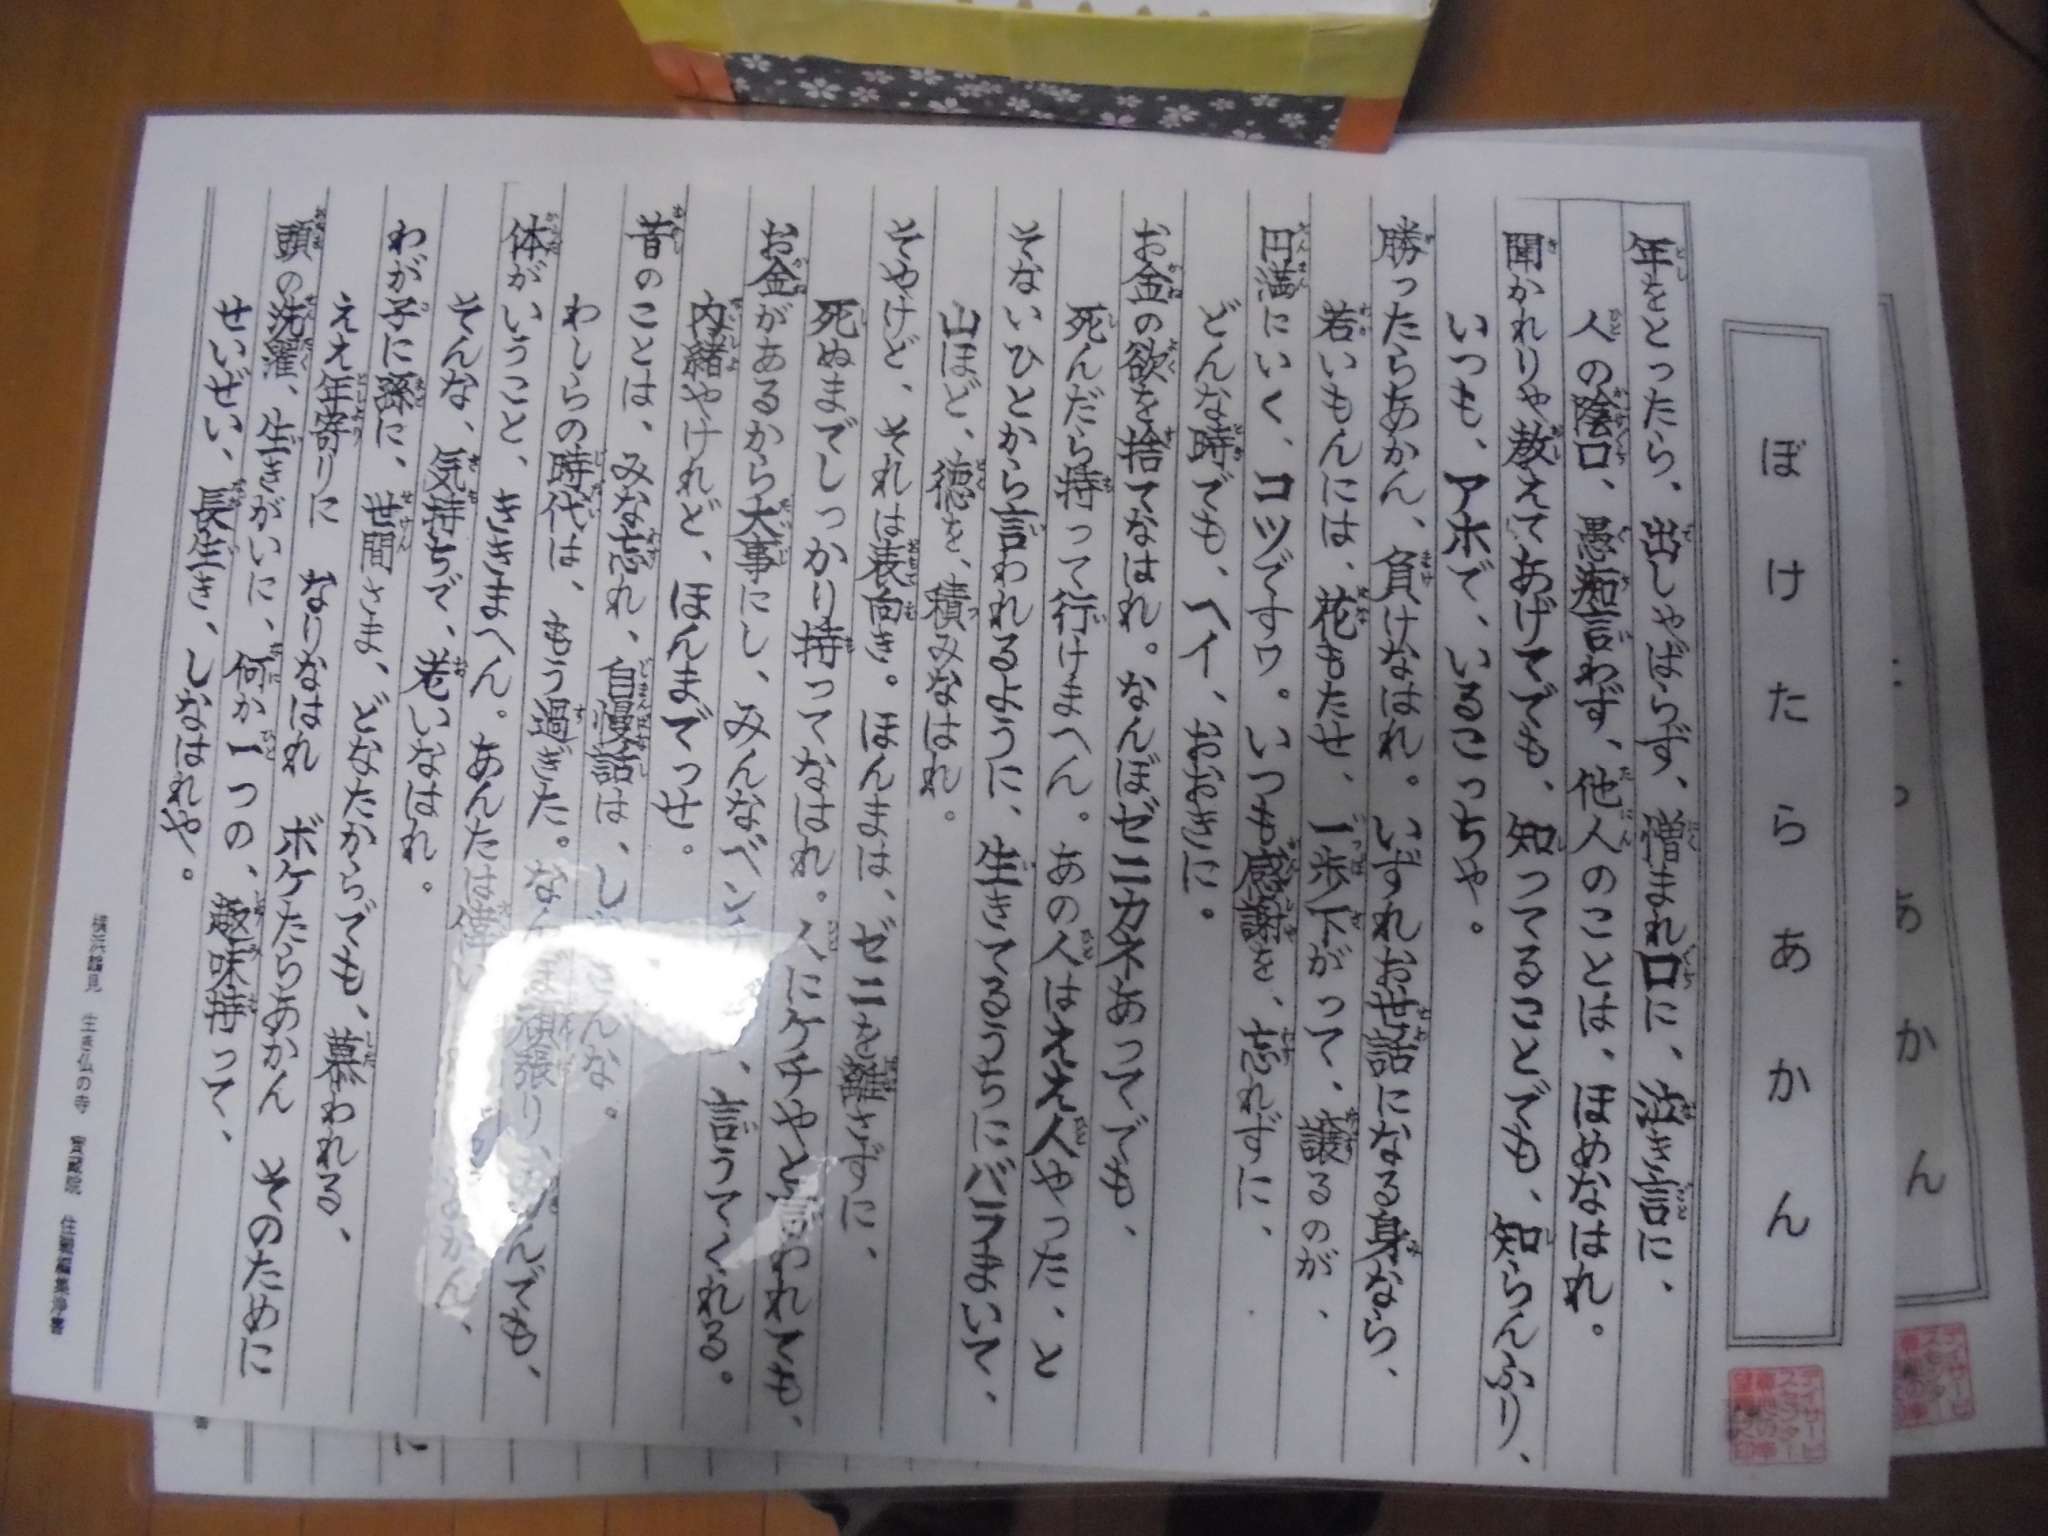 ぼけたらあかん
年をとったら、出しゃばらず、憎まれ口に、泣き言に、
人の陰口、愚痴言わず、他人のことは、ほめなはれ。
聞かれりゃ教えてあげてでも、知ってることでも、知らんふり、
いつも、アホで、いるこっちゃ。
勝ったらあかん、負けなはれ。いずれお世話になる身なら、
若いもんには、花もたせ、一歩下がって、譲るのが、
円満にいく、コツですワ。いつも感謝を、忘れずに、
どんな時でも、ヘイ、おおきに。
お金の欲を捨てなはれ。なんぼゼニカネあってでも、
死んだら持って行けまへん。あの人はええ人やった、と
そないひとから言われるように、生きてるうちにバラまいて、
山ほど、徳を、積みなはれ。
そやけど、それは表向き。ほんまは、ゼニを離さずに、
死ぬまでしっかり持ってなはれ。人にケチやと言われても、
お金があるから大事にし、みんなベンチ、言うてくれる。
内緒やけれど、ほんまでっせ。
昔のことは、みな忘れ、自慢話は、し さんな。
わしらの時代は、もう過ぎた。なんぼ頑張り、 んでも、
体がいうこと、ききまへん。あんたは偉い あかん、
そんな、気持ちで、老いなはれ。
わが子に孫に、世間さま、どなたからでも、慕われる、
ええ年寄りに なりなはれ ボケたらあかん そのために
頭の洗濯、生きがいに、何か一つの、趣味持って、
せいぜい、長生き、しなはれや。
横浜鶴見 生麦仏の寺 宝蔵院 住職
たらあかん
デイサービス